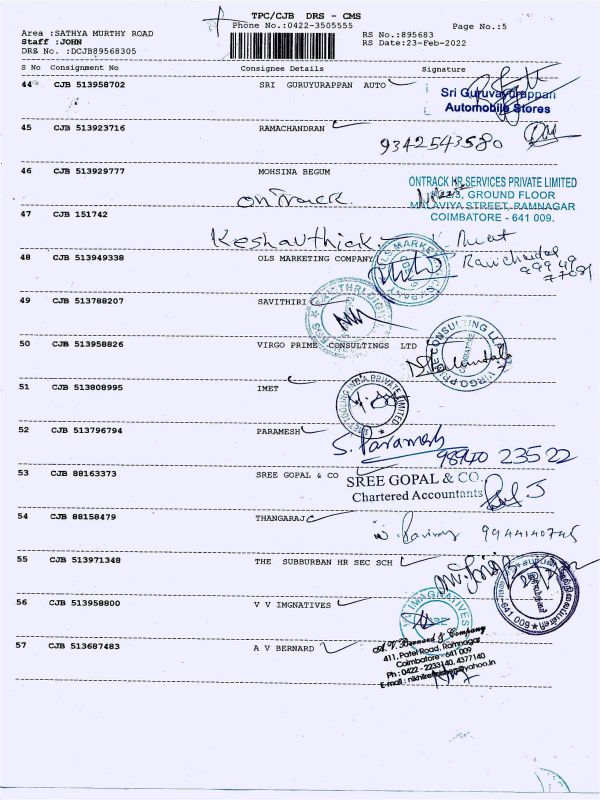 TPC/CJB DRS - CMS
Phone No.:0422-3505555
Page No.:5
Area :SATHYA MURTHY ROAD
RS No.:895683
Staff :JOHN
RS Date:23-Feb-2022
DRS No. :DCJB89568305
S No Consignment No Consignee Details Signature
44 CJB 513958702 SRI GURUYURAPPAN AUTO
Sri Guruvayurappan
Automobile Stores
45 CJB 513923716 RAMACHANDRAN
9342543580
46 CJB 513929777 MOHSINA BEGUM
ONTRACK HR SERVICES PRIVATE LIMITED
GROUND FLOOR
OnTrack
MALAVIYA STREET, RAMNAGAR
COIMBATORE - 641 009.
47 CJB 151742
Keshavthick
48 CJB 513949338 OLS MARKETING COMPANY
49 CJB 513788207 SAVITHIRI
50 CJB 513958826 VIRGO PRIME CONSULTINGS LTD
51 CJB 513808995 IMET
52 CJB 513796794 PARAMESH
S. Paramesh
98940 23522
53 CJB 88163373 SREE GOPAL & CO
SREE GOPAL & CO.
Chartered Accountants
54 CJB 88158479 THANGARAJ
9944140745
55 CJB 513971348 THE SUBBURBAN HR SEC SCH
56 CJB 513958800 V V IMGNATIVES
57 CJB 513687483 A V BERNARD
A.V. Bernard & Company
411, Patel Road, Ramnagar
Coimbatore - 641 009
Ph : 0422 - 2233140, 4377140
E-mail :